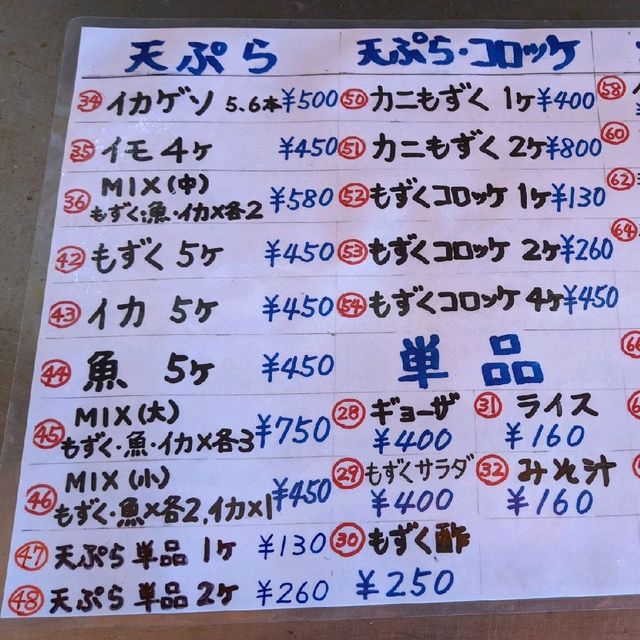 天ぷら
㉞ イカゲソ 5、6本 ¥500
㉟ イモ 4ヶ ¥450
㊱ MIX(中)
もずく・魚・イカ×各2 ¥580
㊷ もずく 5ヶ ¥450
㊸ イカ 5ヶ ¥450
㊹ 魚 5ヶ ¥450
㊺ MIX(大)
もずく・魚・イカ×各3 ¥750
㊻ MIX(小)
もずく・魚×各2、イカ×1 ¥450
㊼ 天ぷら 単品 1ヶ ¥130
㊽ 天ぷら 単品 2ヶ ¥260
天ぷら・コロッケ
㊿ カニもずく 1ヶ ¥400
51 カニもずく 2ヶ ¥800
52 もずくコロッケ 1ヶ ¥130
53 もずくコロッケ 2ヶ ¥260
54 もずくコロッケ 4ヶ ¥450
単品
㉘ ギョーザ
¥400
㉙ もずくサラダ
¥400
㉚ もずく酢
¥250
㉛ ライス
¥160
㉜ みそ汁
¥160
58
60
62
64